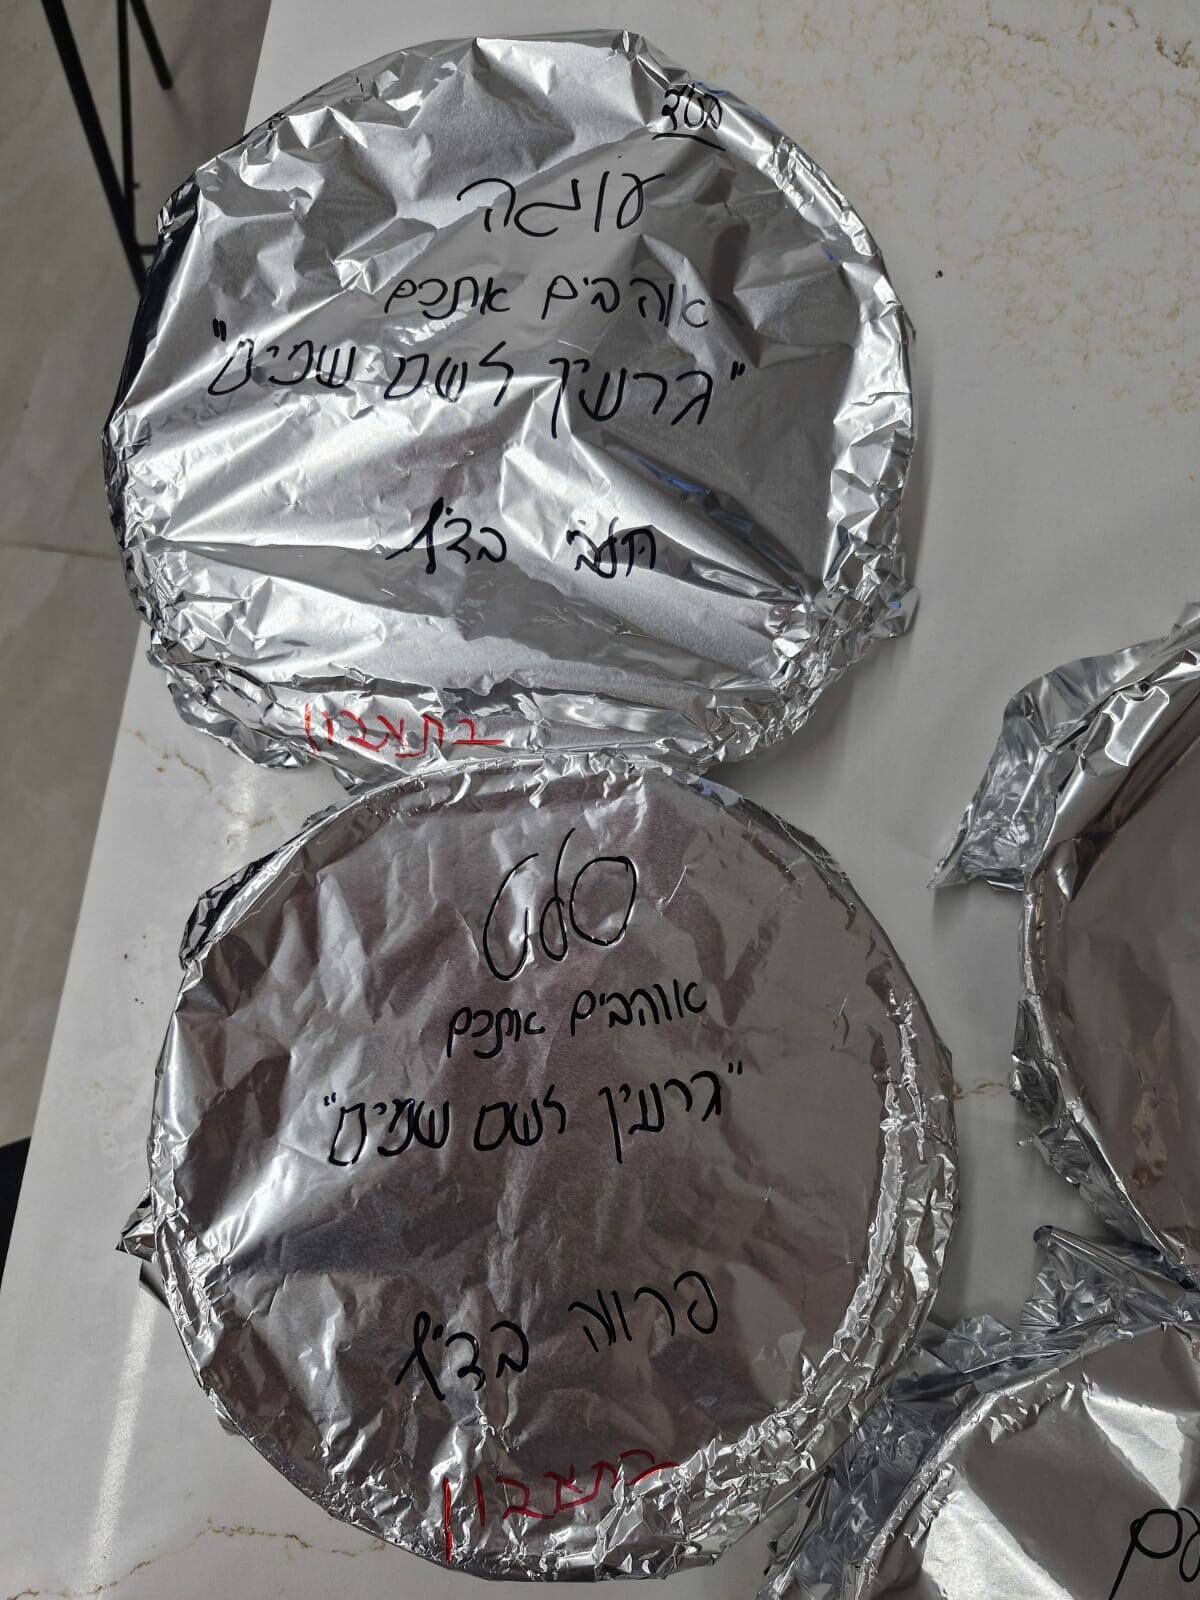 בס"ד
עוגה
אוהבים אתכם
"גרעין לשם שמים"
חלבי בד"ץ
בתאבון
סלט
אוהבים אתכם
"גרעין לשם שמים"
פרווה בד"ץ
בתאבון